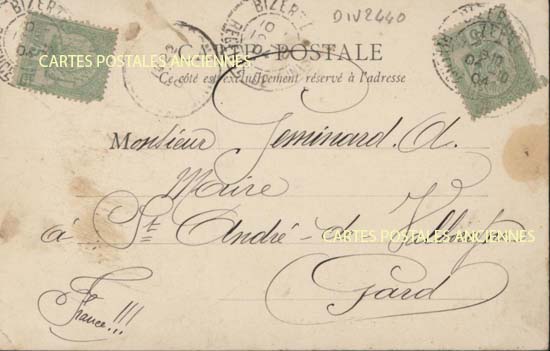 BIZERTE
DIV2440
CARTES POSTALES ANCIENNES
CARTE POSTALE
Ce côté est exclusivement réservé à l'adresse
Monsieur Geminard. A.
Maire
à St André-de
CARTES POSTALES ANCIENNES
Gard
France!!!